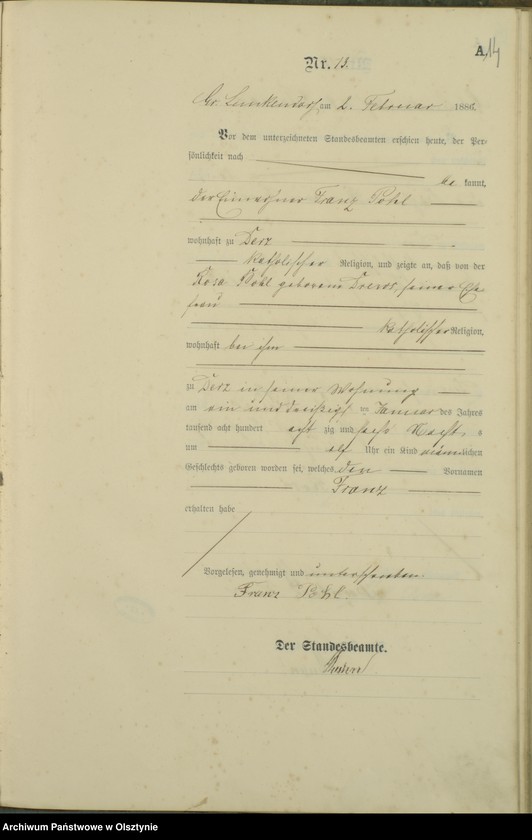 A. 14
Nr. 15.
Gr. Leschkendorf am 2. Februar 1886.
Vor dem unterzeichneten Standesbeamten erschien heute, der Per-
sönlichkeit nach
be kannt,
der Einwohner Franz Pohl
wohnhaft zu Derz
katholischer Religion, und zeigte an, daß von der
Rosa Pohl geborenen seiner Ehe
frau
katholischer Religion,
wohnhaft bei ihm
zu Derz in seiner Wohnung
am ein und dreißigst en Januar des Jahres
tausend acht hundert acht zig und sechs Nachts,
um elf Uhr ein Kind männlichen
Geschlechts geboren worden sei, welches den Vornamen
Franz
erhalten habe
Vorgelesen, genehmigt und unterschrieben.
Franz Pohl.
Der Standesbeamte.
Archiwum Państwowe w Olsztynie